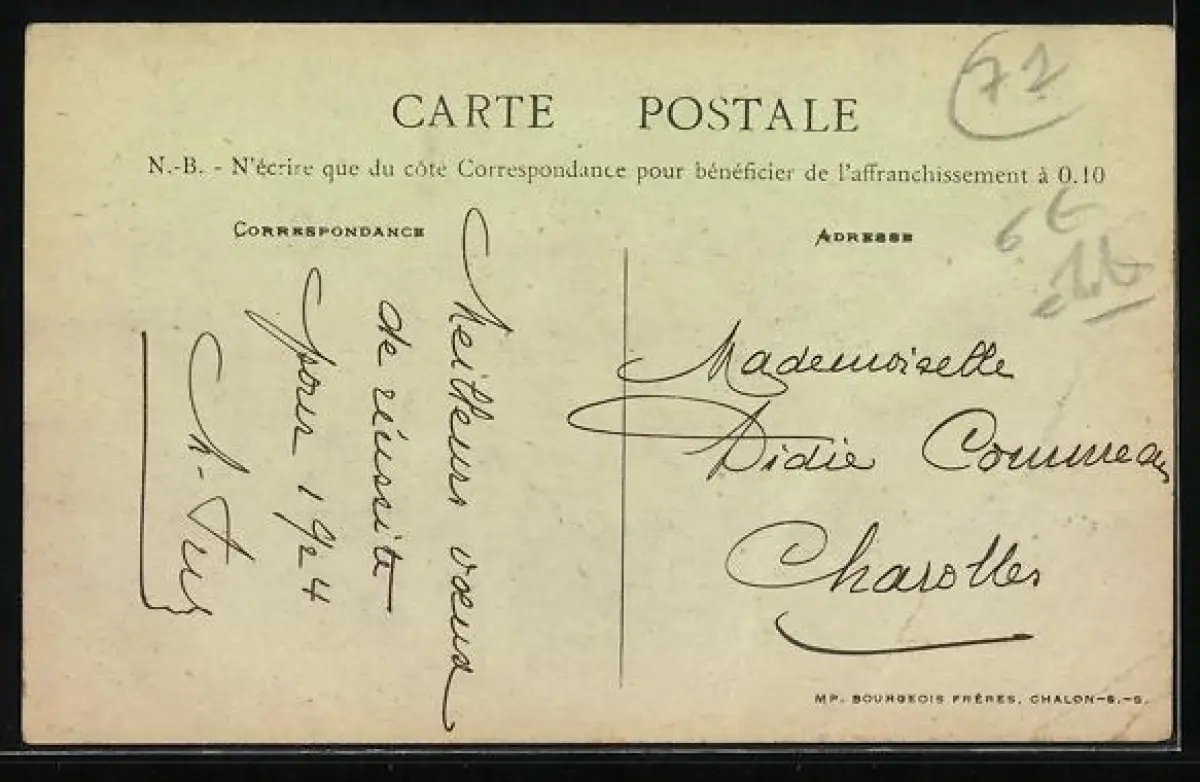 71
CARTE POSTALE
N.-B. - N'écrire que du côté Correspondance pour bénéficier de l'affranchissement à 0.10
CORRESPONDANCE
Meilleurs vœux
de réussite
pour 1924
ADRESSE
Mademoiselle
Didie Commeau
Charolles
MP. BOURGEOIS FRÈRES, CHALON-S.-S.